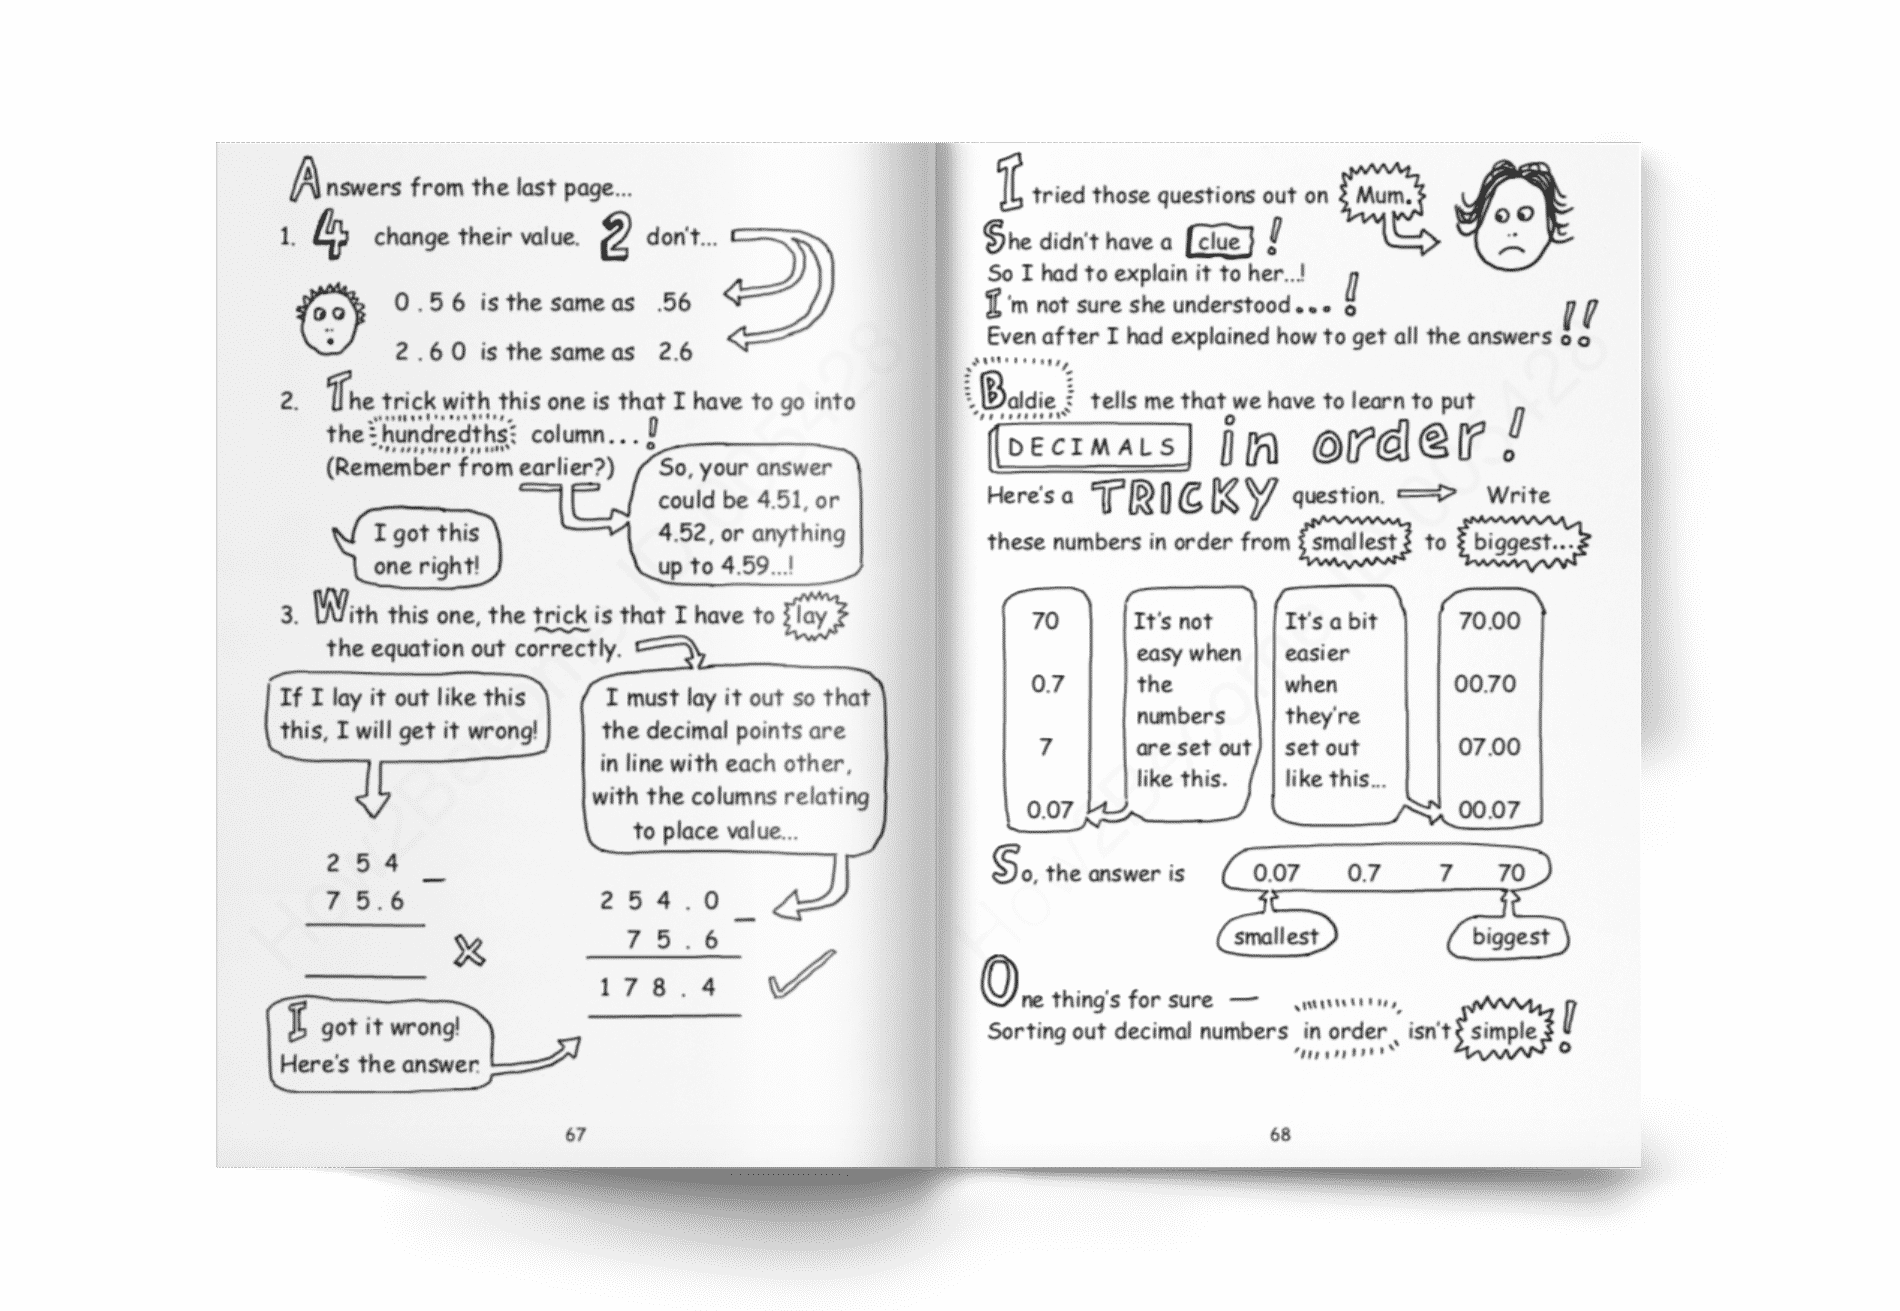 Answers from the last page...
1. 4 change their value. 2 don't...
0.56 is the same as .56
2.60 is the same as 2.6
2. The trick with this one is that I have to go into
the hundredths column...!
(Remember from earlier?)
So, your answer
could be 4.51, or
4.52, or anything
up to 4.59...!
I got this
one right!
3. With this one, the trick is that I have to lay
the equation out correctly.
If I lay it out like this
this, I will get it wrong!
I must lay it out so that
the decimal points are
in line with each other,
with the columns relating
to place value...
2 5 4 –
7 5.6
X
2 5 4 . 0 –
7 5 . 6
1 7 8 . 4
I got it wrong!
Here's the answer.
67
I tried those questions out on Mum.
She didn't have a clue!
So I had to explain it to her...!
I'm not sure she understood...!
Even after I had explained how to get all the answers!!
Baldie tells me that we have to learn to put
DECIMALS in order!
Here's a TRICKY question. Write
these numbers in order from smallest to biggest...
70
0.7
7
0.07
It's not
easy when
the
numbers
are set out
like this.
It's a bit
easier
when
they're
set out
like this...
70.00
00.70
07.00
00.07
So, the answer is 0.07 0.7 7 70
smallest biggest
One thing's for sure —
Sorting out decimal numbers in order isn't simple!
68